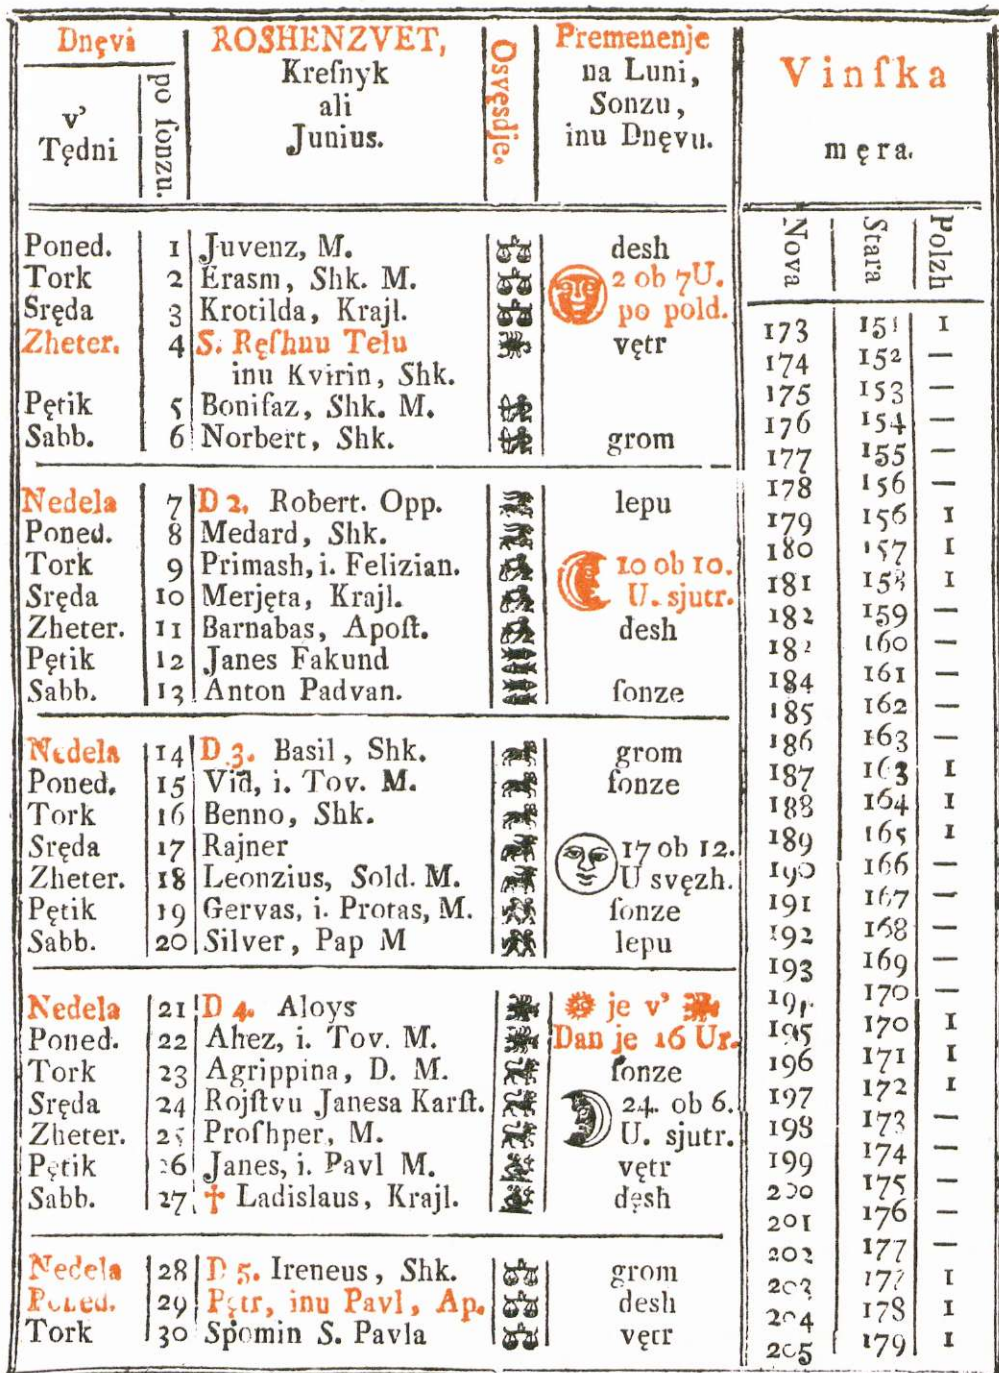 Dnęvi
v’
Tędni
po ſonzu.
ROSHENZVET,
Kreſnyk
ali
Junius.
Osvęsdje.
Premenenje
na Luni,
Sonzu,
inu Dnęvu.
Vinſka
męra.
Nova
Stara
Polzh
Poned. 1 Juvenz, M. desh
Tork 2 Erasm, Shk. M. 2 ob 7U.
Sręda 3 Krotilda, Krajl. po pold.
Zheter. 4 S. Ręſhuu Telu vętr
inu Kvirin, Shk.
Pętik 5 Bonifaz, Shk. M.
Sabb. 6 Norbert, Shk. grom
Nedela 7 D 2. Robert. Opp. lepu
Poned. 8 Medard, Shk.
Tork 9 Primash, i. Felizian. 10 ob 10.
Sręda 10 Merjęta, Krajl. U. sjutr.
Zheter. 11 Barnabas, Apoſt. desh
Pętik 12 Janes Fakund
Sabb. 13 Anton Padvan. ſonze
Nedela 14 D 3. Basil, Shk. grom
Poned. 15 Vid, i. Tov. M. ſonze
Tork 16 Benno, Shk.
Sręda 17 Rajner 17 ob 12.
Zheter. 18 Leonzius, Sold. M. U svęzh.
Pętik 19 Gervas, i. Protas, M. ſonze
Sabb. 20 Silver, Pap M lepu
Nedela 21 D 4. Aloys je v’
Poned. 22 Ahez, i. Tov. M. Dan je 16 Ur.
Tork 23 Agrippina, D. M. ſonze
Sręda 24 Rojſtvu Janesa Karſt. 24. ob 6.
Zheter. 25 Proſhper, M. U. sjutr.
Pętik 26 Janes, i. Pavl M. vętr
Sabb. 27 † Ladislaus, Krajl. dęsh
Nedela 28 D 5. Ireneus, Shk. grom
Poned. 29 Pętr, inu Pavl, Ap. desh
Tork 30 Spomin S. Pavla vętr
173 151 1
174 152 —
175 153 —
176 154 —
177 155 —
178 156 —
179 156 1
180 157 1
181 158 1
182 159 —
182 160 —
184 161 —
185 162 —
186 163 —
187 163 1
188 164 1
189 165 1
190 166 —
191 167 —
192 168 —
193 169 —
194 170 —
195 170 1
196 171 1
197 172 1
198 173 —
199 174 —
200 175 —
201 176 —
202 177 —
203 177 1
204 178 1
205 179 1